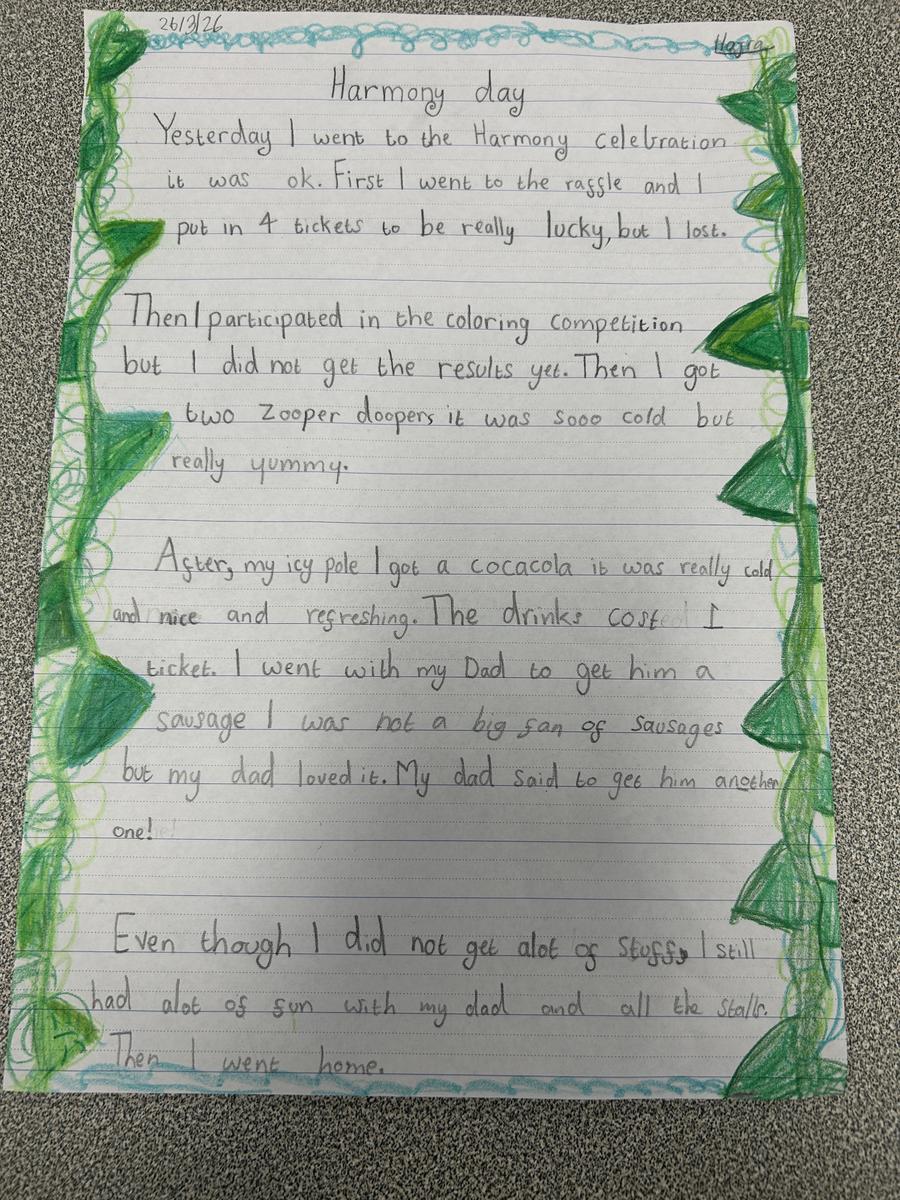 26/3/26
Hajra
Harmony day
Yesterday I went to the Harmony celebration
it was ok. First I went to the raffle and I
put in 4 tickets to be really lucky, but I lost.
Then I participated in the coloring competition
but I did not get the results yet. Then I got
two Zooper doopers it was sooo cold but
really yummy.
After, my icy pole I got a cocacola it was really cold
and nice and refreshing. The drinks cost 1
ticket. I went with my Dad to get him a
sausage I was not a big fan of sausages
but my dad loved it. My dad said to get him another
one!
Even though I did not get alot of stuff, I still
had alot of fun with my dad and all the stalls.
Then I went home.